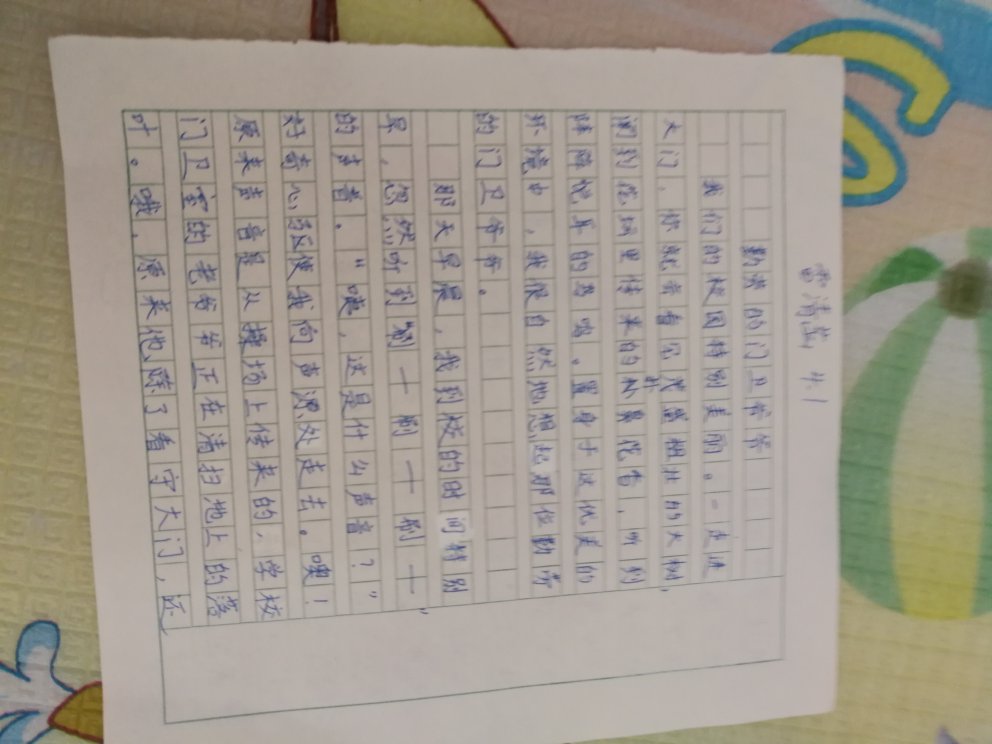 雷清尚 共1
勤劳的门卫爷爷
我们的校园特别美丽。一走进
大门，你就会看见茂盛粗壮的大树，
闻到花园里传来的朴鼻花香，听到
阵阵悦耳的鸟鸣。置身于这优美的
环境中，我很自然地想起那位勤劳
的门卫爷爷。
那天早晨，我到校的时间特别
早，忽然听到“唰——唰——唰——”
的声音。“咦，这是什么声音？”
好奇心驱使我向声源处走去。噢！
原来声音是从操场上传来的，学校
门卫室的老爷爷正在清扫地上的落
叶。哦，原来他除了看守大门，还